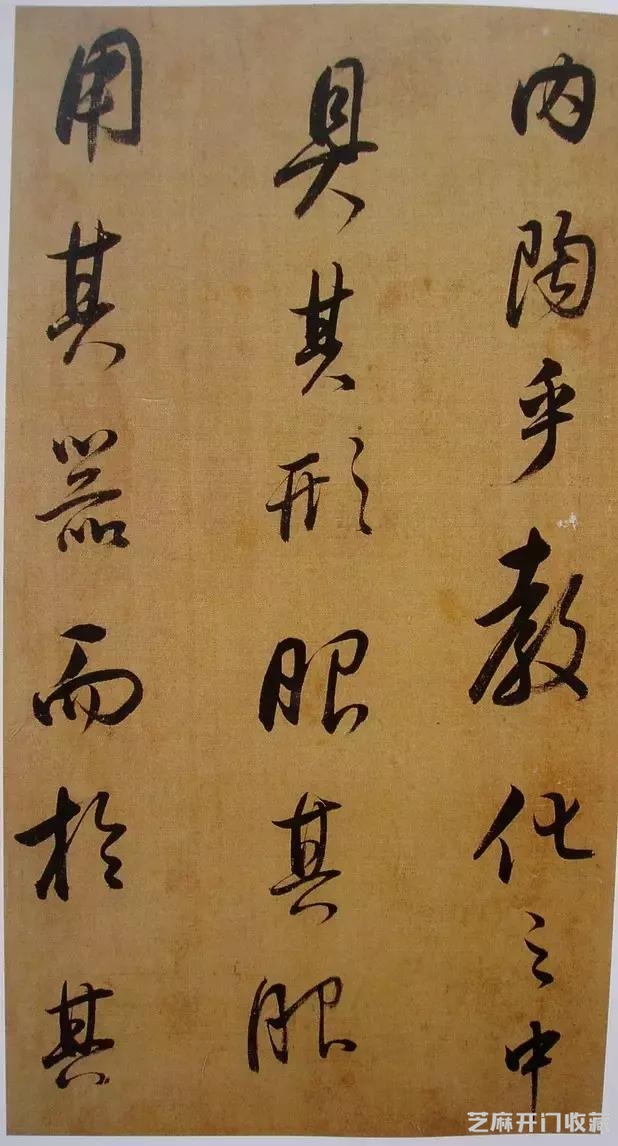 内陶乎教化之中
具其形服其服
用其器而於其
芝麻开门收藏